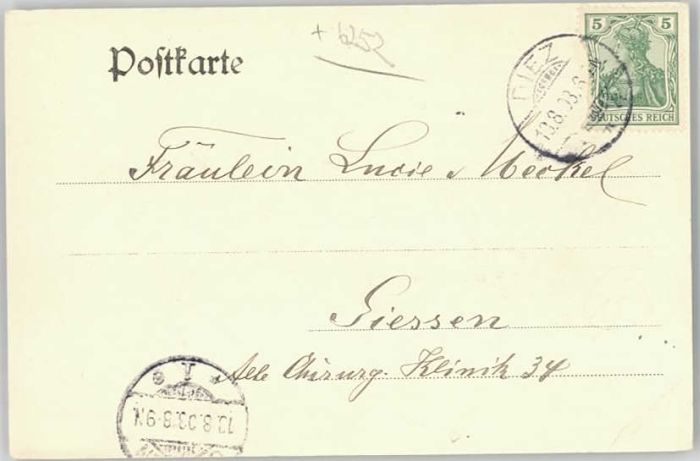 + 6252
5 5
DEUTSCHES REICH
Postkarte
DIEZ
10.8.03.
Fräulein Lucie v Meckel
Giessen
Alte Chirurg. Klinik 34
10.8.03.8-9N